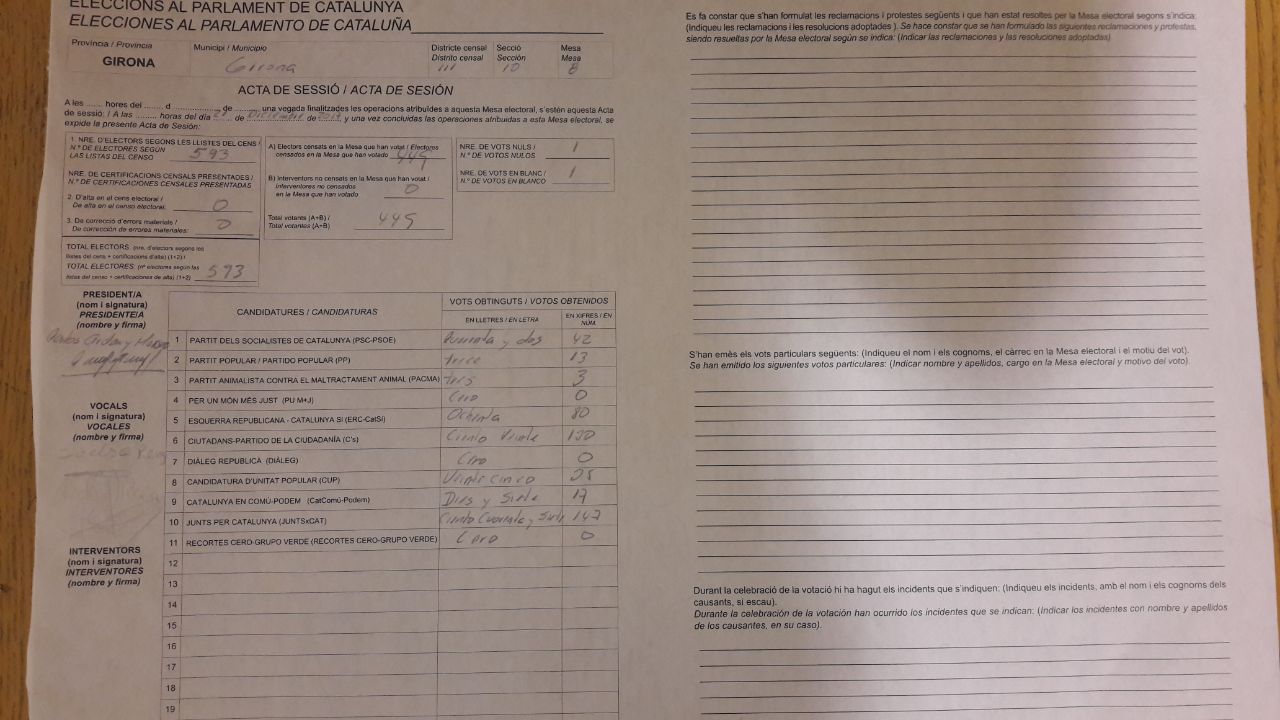 ELECCIONS AL PARLAMENT DE CATALUNYA
ELECCIONES AL PARLAMENTO DE CATALUÑA
Província / Provincia
GIRONA
Municipi / Municipio
Girona
Districte censal
Distrito censal
III
Secció
Sección
10
Mesa
Mesa
B
ACTA DE SESSIÓ / ACTA DE SESIÓN
A les ....... hores del ........ d .................... de .......... una vegada finalitzades les operacions atribuïdes a aquesta Mesa electoral, s'estén aquesta Acta
de sessió: / A las ......... horas del día de Diciembre de y una vez concluidas las operaciones atribuidas a esta Mesa electoral, se
expide la presente Acta de Sesión:
1. NRE. D'ELECTORS SEGONS LES LLISTES DEL CENS /
N.º DE ELECTORES SEGÚN
LAS LISTAS DEL CENSO 593
NRE. DE CERTIFICACIONS CENSALS PRESENTADES /
N.º DE CERTIFICACIONES CENSALES PRESENTADAS
2. D'alta en el cens electoral /
De alta en el censo electoral: 0
3. De correcció d'errors materials /
De corrección de errores materiales: 0
TOTAL ELECTORS (nre. d'electors segons les
llistes del cens + certificacions d'alta) (1+2) /
TOTAL ELECTORES: (nº electores según las
listas del censo + certificaciones de alta) (1+2) 593
A) Electors censats en la Mesa que han votat / Electores
censados en la Mesa que han votado 449
B) Interventors no censats en la Mesa que han votat /
Interventores no censados
en la Mesa que han votado 0
Total votants (A+B) /
Total votantes (A+B) 449
NRE. DE VOTS NULS /
N.º DE VOTOS NULOS 1
NRE. DE VOTS EN BLANC /
N.º DE VOTOS EN BLANCO 1
PRESIDENT/A
(nom i signatura)
PRESIDENTE/A
(nombre y firma)
VOCALS
(nom i signatura)
VOCALES
(nombre y firma)
INTERVENTORS
(nom i signatura)
INTERVENTORES
(nombre y firma)
CANDIDATURES / CANDIDATURAS
VOTS OBTINGUTS / VOTOS OBTENIDOS
EN LLETRES / EN LETRA
EN XIFRES / EN NÚM.
1 PARTIT DELS SOCIALISTES DE CATALUNYA (PSC-PSOE) y dos 42
2 PARTIT POPULAR / PARTIDO POPULAR (PP) trece 13
3 PARTIT ANIMALISTA CONTRA EL MALTRACTAMENT ANIMAL (PACMA) tres 3
4 PER UN MÓN MÉS JUST (PU M+J) Cero 0
5 ESQUERRA REPUBLICANA - CATALUNYA SÍ (ERC-CatSí) Ochenta 80
6 CIUTADANS-PARTIDO DE LA CIUDADANÍA (C's) Ciento Veinte 120
7 DIÀLEG REPUBLICÀ (DIÀLEG) Cero 0
8 CANDIDATURA D'UNITAT POPULAR (CUP) Veinti Cinco 25
9 CATALUNYA EN COMÚ-PODEM (CatComú-Podem) Dies y Siete 17
10 JUNTS PER CATALUNYA (JUNTSxCAT) Ciento Cuarenta y Siete 147
11 RECORTES CERO-GRUPO VERDE (RECORTES CERO-GRUPO VERDE) Cero 0
12
13
14
15
16
17
18
19
Es fa constar que s'han formulat les reclamacions i protestes següents i que han estat resoltes per la Mesa electoral segons s'indica:
(Indiqueu les reclamacions i les resolucions adoptades ). Se hace constar que se han formulado las siguientes reclamaciones y protestas,
siendo resueltas por la Mesa electoral según se indica: (Indicar las reclamaciones y las resoluciones adoptadas)
S'han emès els vots particulars següents: (Indiqueu el nom i els cognoms, el càrrec en la Mesa electoral i el motiu del vot).
Se han emitido los siguientes votos particulares: (Indicar nombre y apellidos, cargo en la Mesa electoral y motivo del voto).
Durant la celebració de la votació hi ha hagut els incidents que s'indiquen: (Indiqueu els incidents, amb el nom i els cognoms dels
causants, si escau).
Durante la celebración de la votación han ocurrido los incidentes que se indican: (Indicar los incidentes con nombre y apellidos
de los causantes, en su caso).